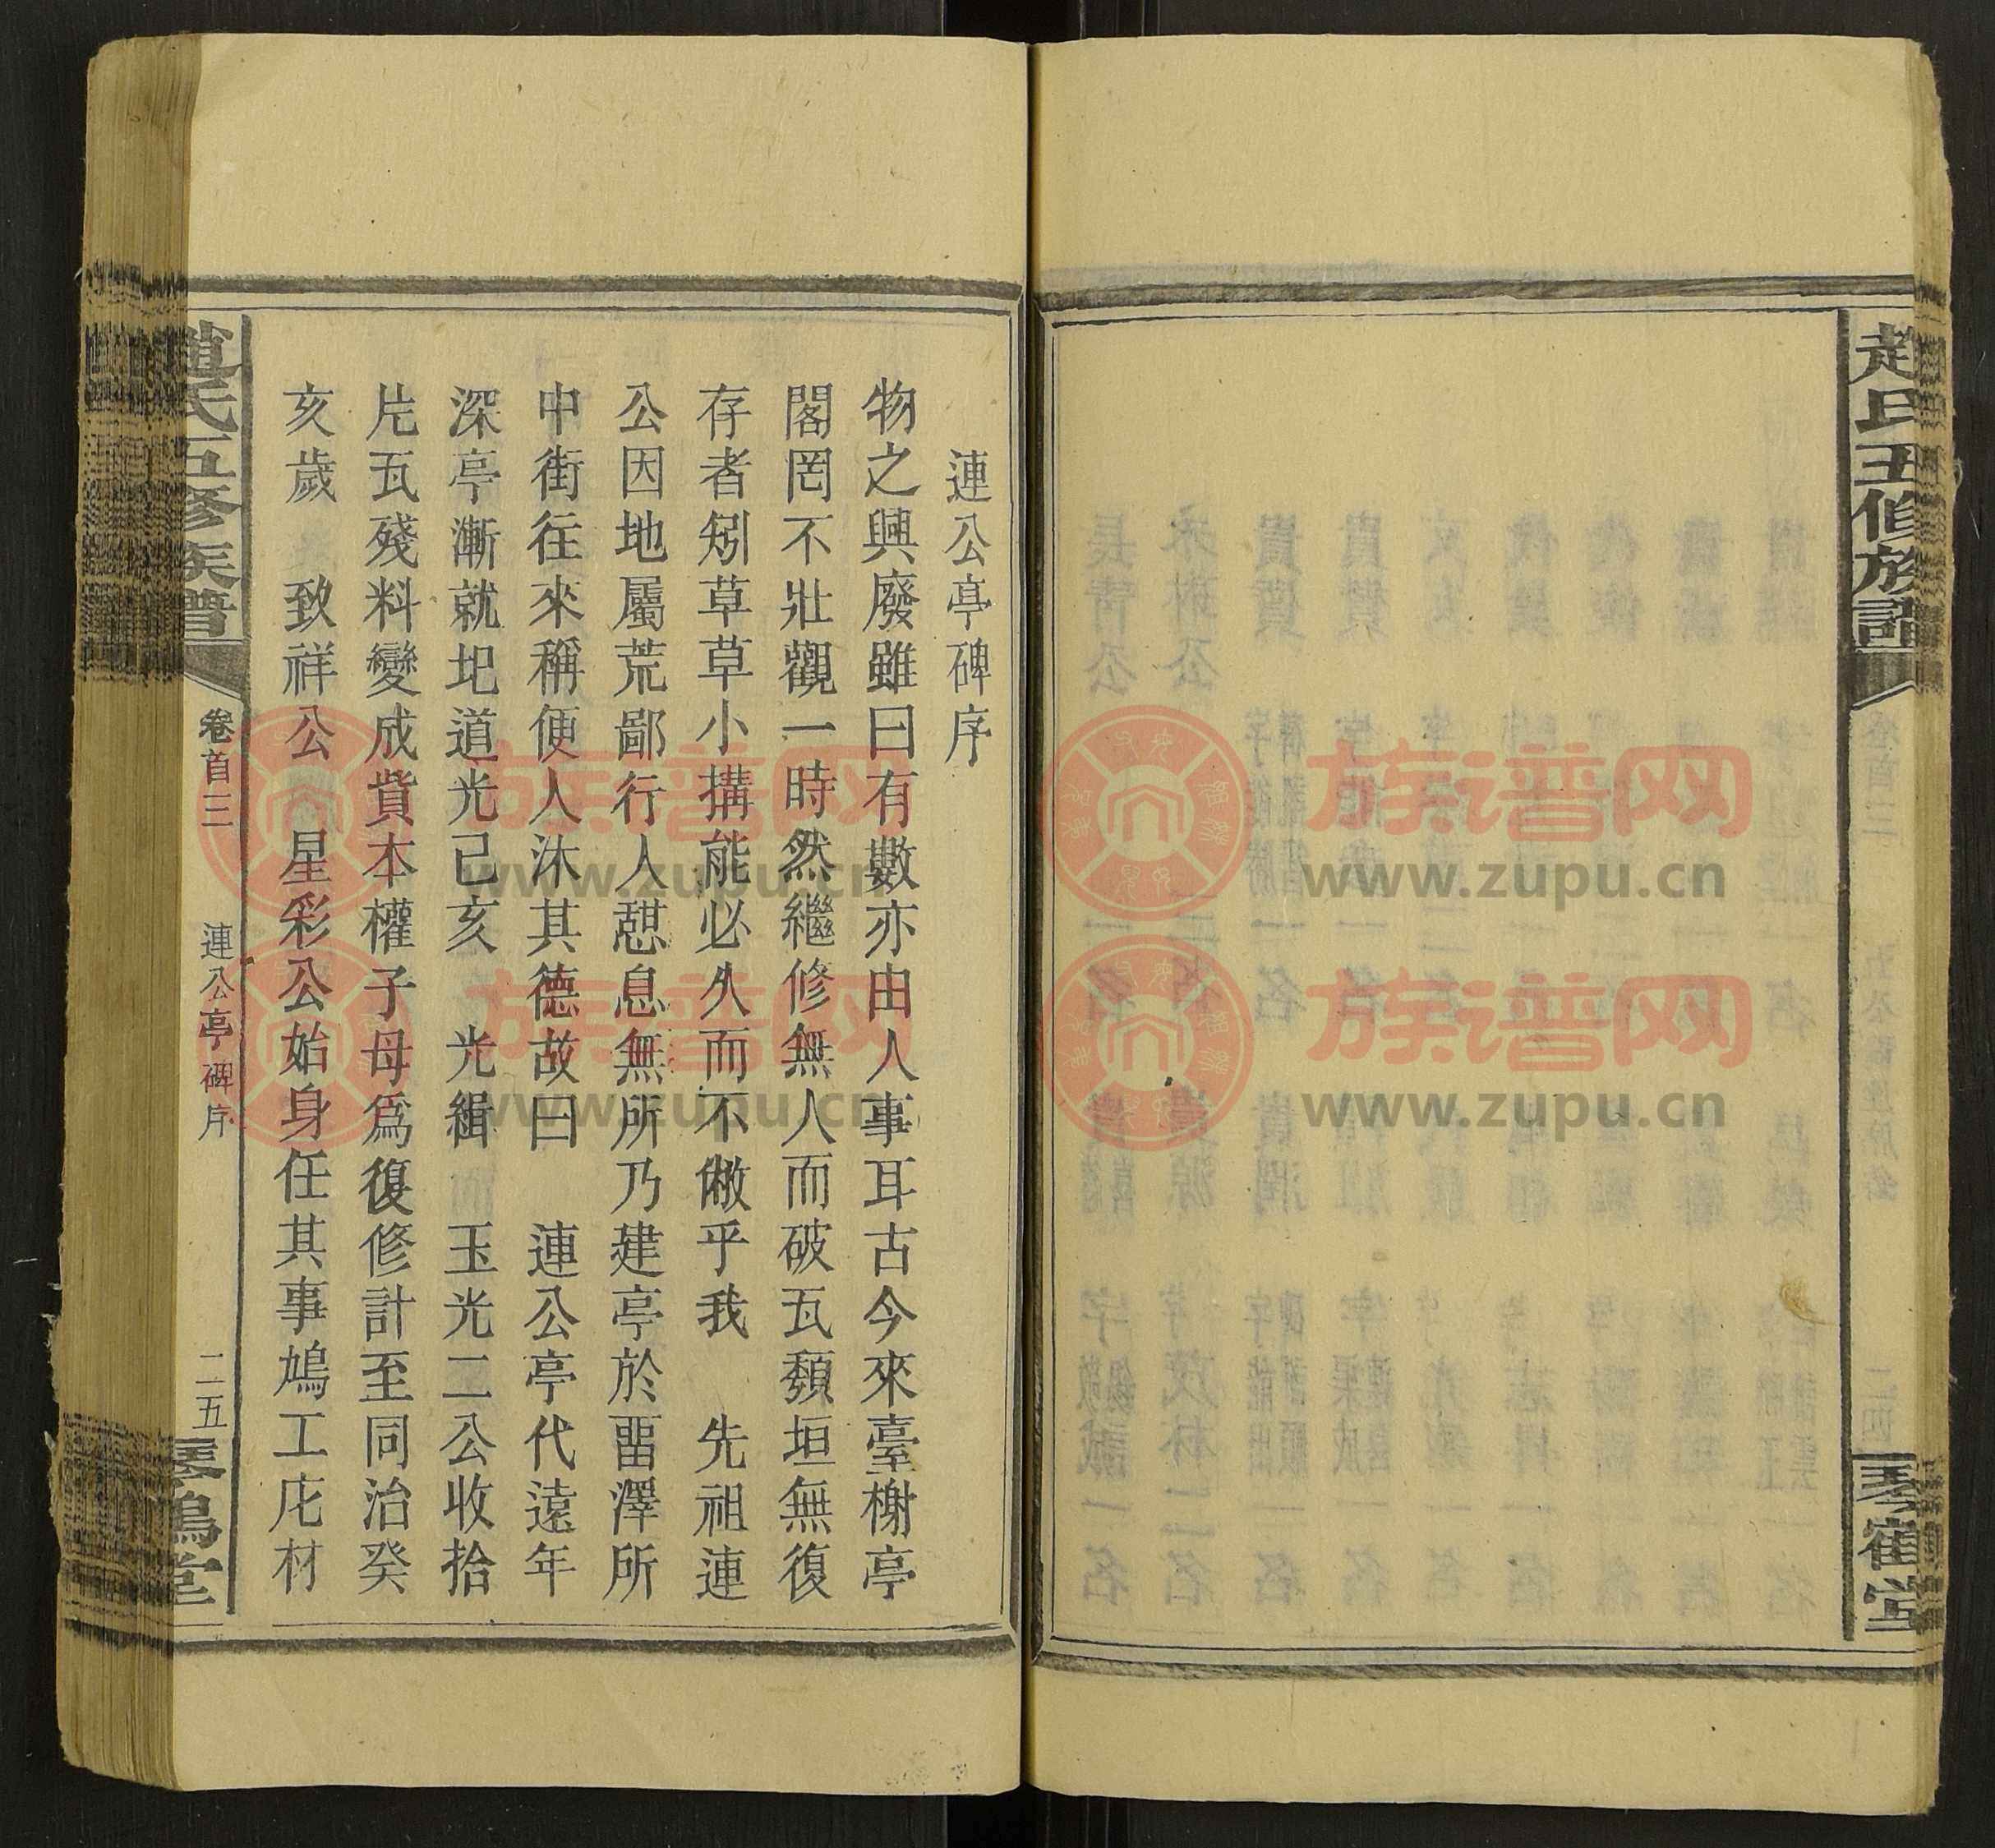 趙氏五修族譜
琴鶴堂
連公亭碑序
物之興廢雖曰有數亦由人事耳古今來臺榭亭
閣罔不壯觀一時然繼修無人而破瓦頽垣無復
存者矧草草小搆能必久而不敝乎我　先祖連
公因地屬荒鄙行人憇息無所乃建亭於畱澤所
中街往來稱便人沐其德故曰　連公亭代遠年
深亭漸就圯道光己亥　光緝　玉光二公收拾
片瓦殘料變成貲本權子母爲復修計至同治癸
亥歲　致祥公　星彩公始身任其事鳩工庀材
趙氏五修族譜
卷首三
連公亭碑序
二五
琴鶴堂
族谱网
www.zupu.cn
族谱网
www.zupu.cn
族谱网
www.zupu.cn
族谱网
www.zupu.cn